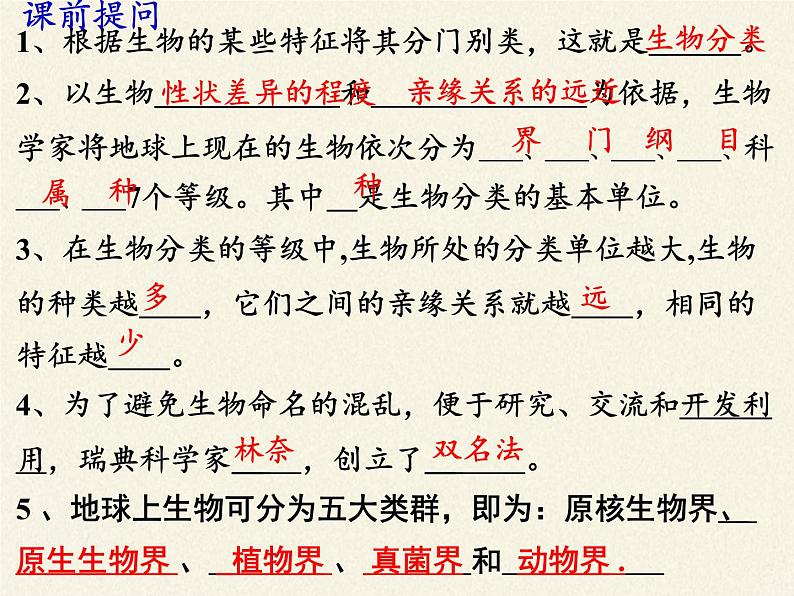 课前提问
1、根据生物的某些特征将其分门别类，这就是生物分类。
2、以生物性状差异的程度和亲缘关系的远近为依据，生物
学家将地球上现在的生物依次分为界、门、纲、目、科
、属、种7个等级。其中种是生物分类的基本单位。
3、在生物分类的等级中,生物所处的分类单位越大,生物
的种类越多，它们之间的亲缘关系就越远，相同的
特征越少。
4、为了避免生物命名的混乱，便于研究、交流和开发利
用，瑞典科学家林奈，创立了双名法。
5 、地球上生物可分为五大类群，即为：原核生物界、
原生生物界 、 植物界 、 真菌界 和 动物界 .